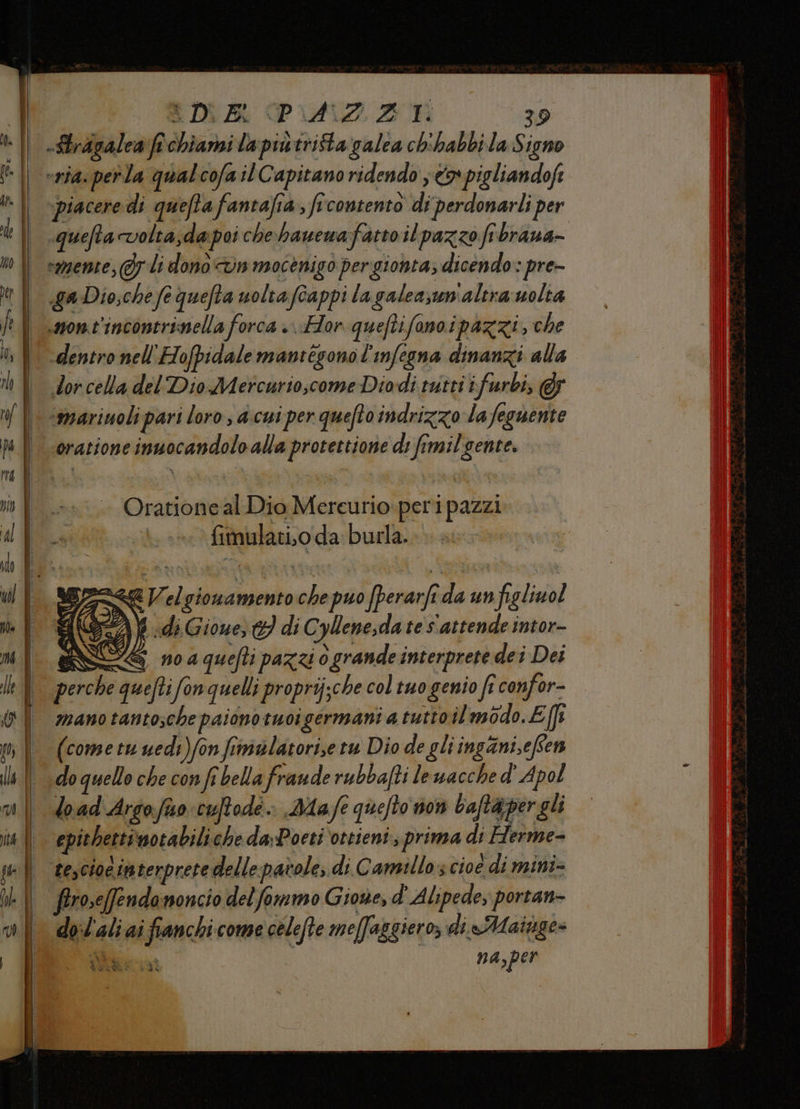 DE' PAZZI. 39
Stragalea ſi chiami la più triſta galea ch'habbi la Signo
ria. per la qual coſa il Capitano ridendo, & pigliandoſi
piacere di queſta fantaſia, ſi contentò di perdonarli per
queſta volta, da poi che haueua fatto il pazzo ſi braua-
mente, & li donò vn mocenigo per gionta, dicendo: pre-
ga Dio, che ſe queſta uolta ſcappi la galea, un'altra uolta
non t'incontri nella forca. Hor queſti ſono i pazzi, che
dentro nell'Hoſpidale mantégono l'inſegna dinanzi alla
lor cella del Dio Mercurio, come Dio di tutti i furbi, &
mariuoli pari loro, à cui per queſto indrizzo la ſeguente
oratione inuocandolo alla protettione di ſimil gente.
Oratione al Dio Mercurio per i pazzi
ſimulati, o da burla.
Vel giouamento che puo ſperarſi da un figliuol
di Gioue, & di Cyllene, da te s'attende intor-
no a queſti pazzi ò grande interprete dei Dei
perche queſti ſon quelli proprij, che col tuo genio ſi confor-
mano tanto, che paiono tuoi germani a tutto il modo. Eſſi
(come tu uedi) ſon ſimulatori, e tu Dio de gli ingãni, eſſen
do quello che con ſi bella fraude rubbaſti le uacche d'Apol
lo ad Argo ſuo cuſtode. Ma ſe queſto non baſta per gli
epithetti notabili che da Poeti ottieni, prima di Herme-
te, cioè interprete delle parole, di Camillo; cioè di mini-
ſtro, eſſendo noncio del ſommo Gioue, d'Alipede, portan-
do l'ali ai fianchi come celeſte meſſaggiero, di Maiuge-
na, per